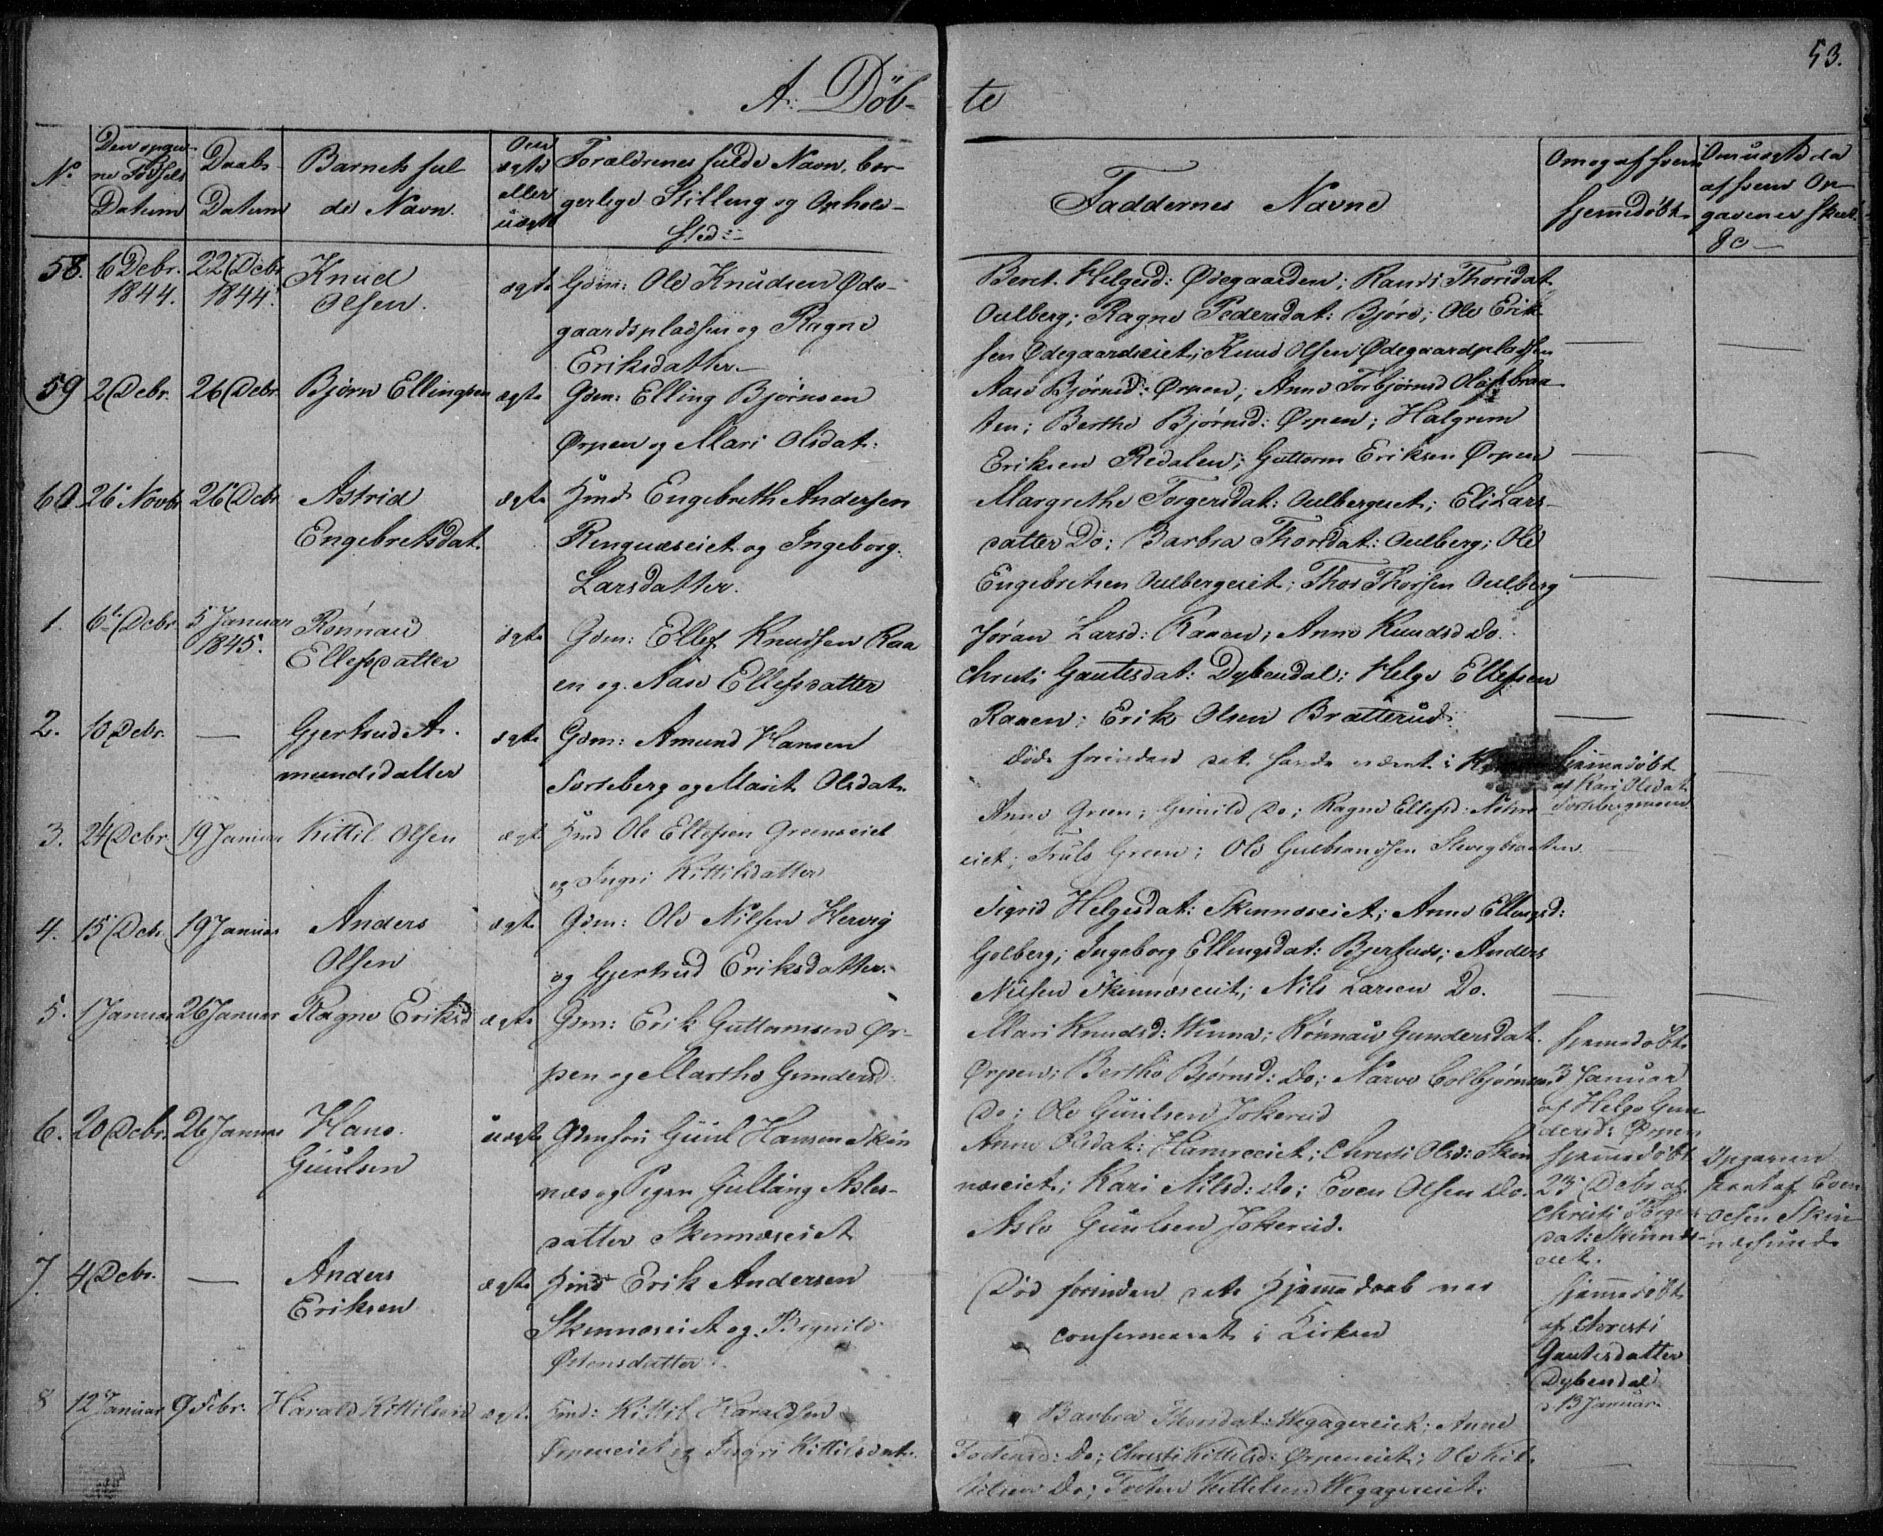 53.
A. Döb- te
No
Den opgiv-
ne Fødsels
Datum
Daabs
Datum
Barnets ful
de Navn.
Om
ægte
eller
uægte
Forældrenes fulde Navn, bor-
gerlige Stilling og Opholds-
Sted
Faddernes Navne
Om og af hvem
hjemmedøbt
Om uægte da
af hvem Op-
gaven er skeet
58. 6 Debr. 1844. 22 Debr 1844. Knud Olsen. ægte
Gdm: Ole Knudsen Øde-
gaardspladsen og Ragne
Eriksdatter
Beret Helgesd: Ødegaarden; Randi Thorsdat
Aulberg; Ragne Pedersdat: Bjøre; Ole Erik
sen Ødegaardseiet; Knud Olsen Ødegaardpladsen
59 2 Debr. 26 Debr. Bjørn Ellingsen ægte
Gdm: Elling Bjørnsen
Ørpen og Mari Olsdat:
Aase Bjørnsd: Ørpen; Anne Torbjørnsd Olafsbraa
ten; Berthe Bjørnsd: Ørpen; Halgrim
Eriksen Redalen; Guttorm Eriksen Ørpen
60 26 Novbr 26 Debr Astrid Engebretsdat. ægte
Hmd: Engebreth Andersen
Ringnæseiet og Ingeborg
Larsdatter.
Margrethe Torgersdat: Aulbergeiet; Eli Lars-
datter Do; Barbra Thorsdat: Aulberg; Ole
Engebretsen Aulbergeiet; Thos Thorsen Aulberg
1. 6te Debr. 5 Januar 1845. Rønnau Ellefsdatter ægte
Gdm: Ellef Knudsen Raa
en og Aase Ellefsdatter
Jøran Larsd: Raaen; Anne Knudsd Do.
Christi Gautesdat: Dybendal; Helge Ellefsen
Raaen; Erik Olsen Bratterud
2. 10 Debr. — Gjertrud A-
mundsdatter ægte
Gdm: Amund Hansen
Sorteberg og Marit Olsdat.
døde forinden det havde været i
hjemmedøbt
af Kari Olsdat
Sortebergmoen
3. 24 Debr 19 Januar Kittil Olsen ægt
Hmd Ole Ellefsen Greenseiet
og Ingri Kittilsdatter
Anne Green; Gunild Do; Ragne Ellefsd:
eiet; Truls Green; Ole Gulbrandsen
4. 15 Debr. 19 Januar Anders Olsen ægte
Gdm: Ole Nilsen Hervig
og Gjertrud Eriksdatter.
Sigrid Helgesdat: Skinnæseiet; Anne Ellingsd:
Golberg; Ingeborg Ellingsdat: Bjertnæs; Anders
Nilsen Skinnæseiet; Nils Larsen Do.
5. 1 Januar 26 Januar Ragne Eriksd ægte
Gdm: Erik Guttormsen Ør-
pen og Marthe Gundersd
Mari Knudsd: Winna; Rønnau Gundersdat.
Ørpen; Berthe Bjørnsd: Do; Narve Colbjørnsen
Do; Ole Guulsen Jokerud
hjemmedøbt
3 Januar
af Helge Gun
dersd: Ørpen
6. 20 Debr. 26 Januar Hans Guulsen uægte
Gdmsøn Guul Hansen Skin
næs og Pigen Gulling Asles-
datter Skinnæseiet
Anne Olsdat: Hamreeiet; Christi Olsd: Skin
næseiet; Kari Nilsd: Do; Even Olsen Do.
Aslo Guulsen Jokerud.
hjemmedøbt
23 Debr af
Christi Torger
dat: Skinnæs-
eiet.
Opgaven
skeet af Even
Olsen Skin
næseiet
7. 4 Debr. — Anders Eriksen ægte
Hmd: Erik Andersen
Skinnæseiet og Bignild
Østensdatter.
Død forinden dets Hjemmedaab var
confirmeret i Kirken
hjemmedøbt
af Christi
Gautesdatter
Dybendal
d 13 Januar
8 12 Januar 9 Febr. Harald Kittilsen ægte
Hmd: Kittil Haraldsen
Ørpeneiet og Ingri Kittilsdat.
Barbra Thorsdat: Wegagereiet; Anne
Tostensd: Do; Christi Kittilsd: Ørpeneiet; Ole Kit-
tilsen Do; Tosten Kittelsen Wegagereiet.